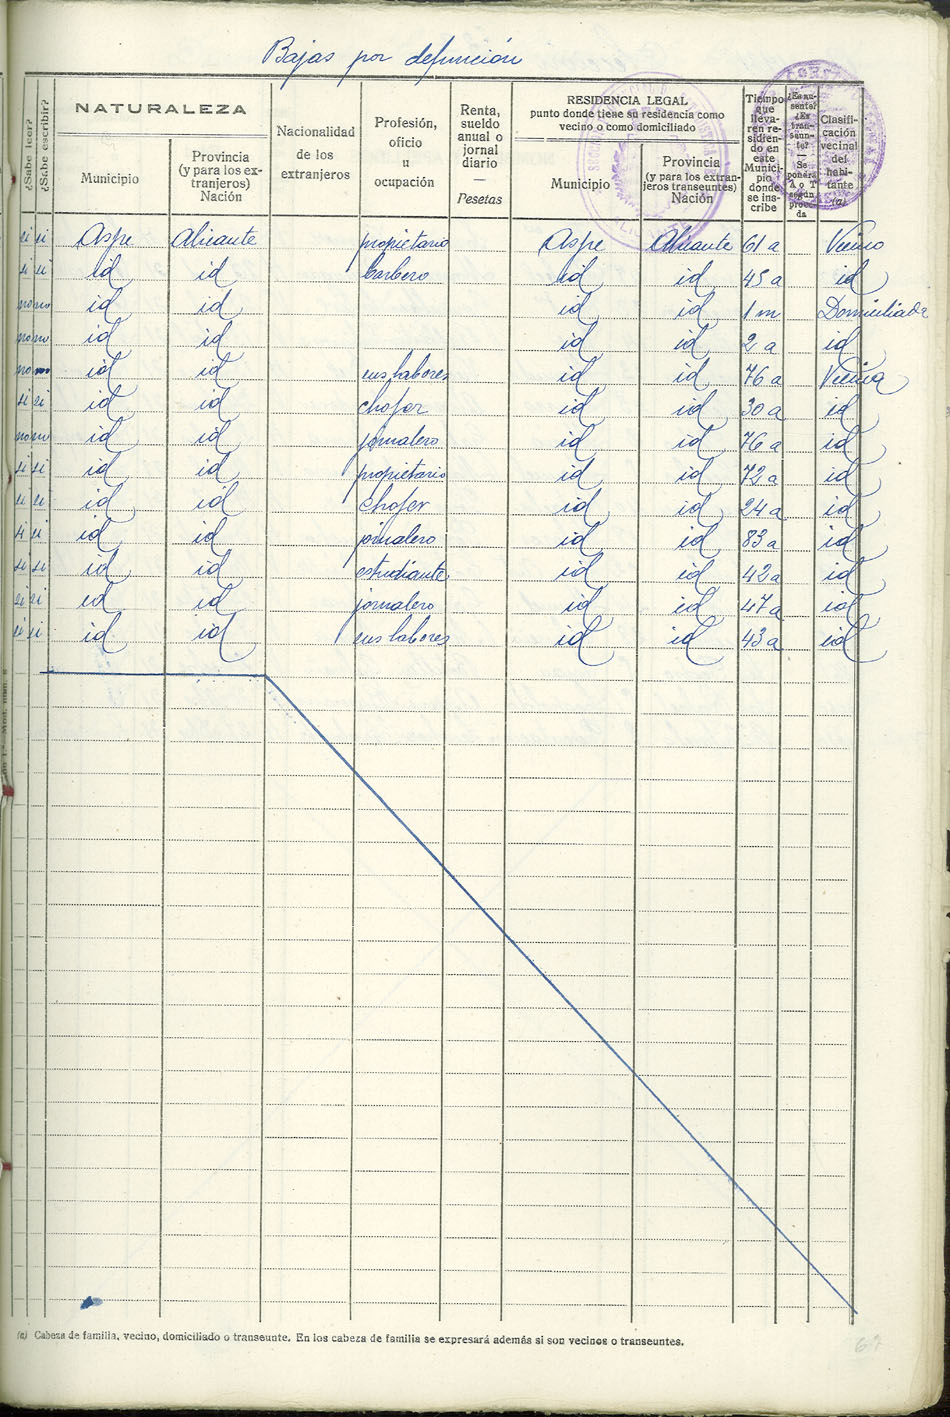 Bajas por defunción
¿Sabe leer?
¿Sabe escribir?
NATURALEZA
Municipio
Provincia
(y para los ex-
tranjeros)
Nación
Nacionalidad
de los
extranjeros
Profesión,
oficio
u
ocupación
Renta,
sueldo
anual o
jornal
diario
—
Pesetas
RESIDENCIA LEGAL
punto donde tiene su residencia como
vecino o como domiciliado
Municipio
Provincia
(y para los extran-
jeros transeuntes)
Nación
Tiempo
que
lleva-
ren re-
sidien-
do en
este
Munici-
pio
donde
se ins-
cribe
¿Es au-
sente?
¿Es
tran-
seun-
te?
—
Se
pondrá
A o T
según
proce-
da
Clasifi-
cación
vecinal
del
habi-
tante
(a)
si si Aspe Alicante propietario Aspe Alicante 61 a Vecino
si si id id barbero id id 45 a id
no no id id id id 1 m Domiciliada
no no id id id id 2 a id
no no id id sus labores id id 76 a Vecina
si si id id chofer id id 30 a id
no no id id jornalero id id 76 a id
si si id id propietario id id 72 a id
si si id id chofer id id 24 a id
si si id id jornalero id id 83 a id
si si id id estudiante id id 42 a id
si si id id jornalero id id 47 a id
si si id id sus labores id id 43 a id
(a) Cabeza de familia, vecino, domiciliado o transeunte. En los cabeza de familia se expresará además si son vecinos o transeuntes.